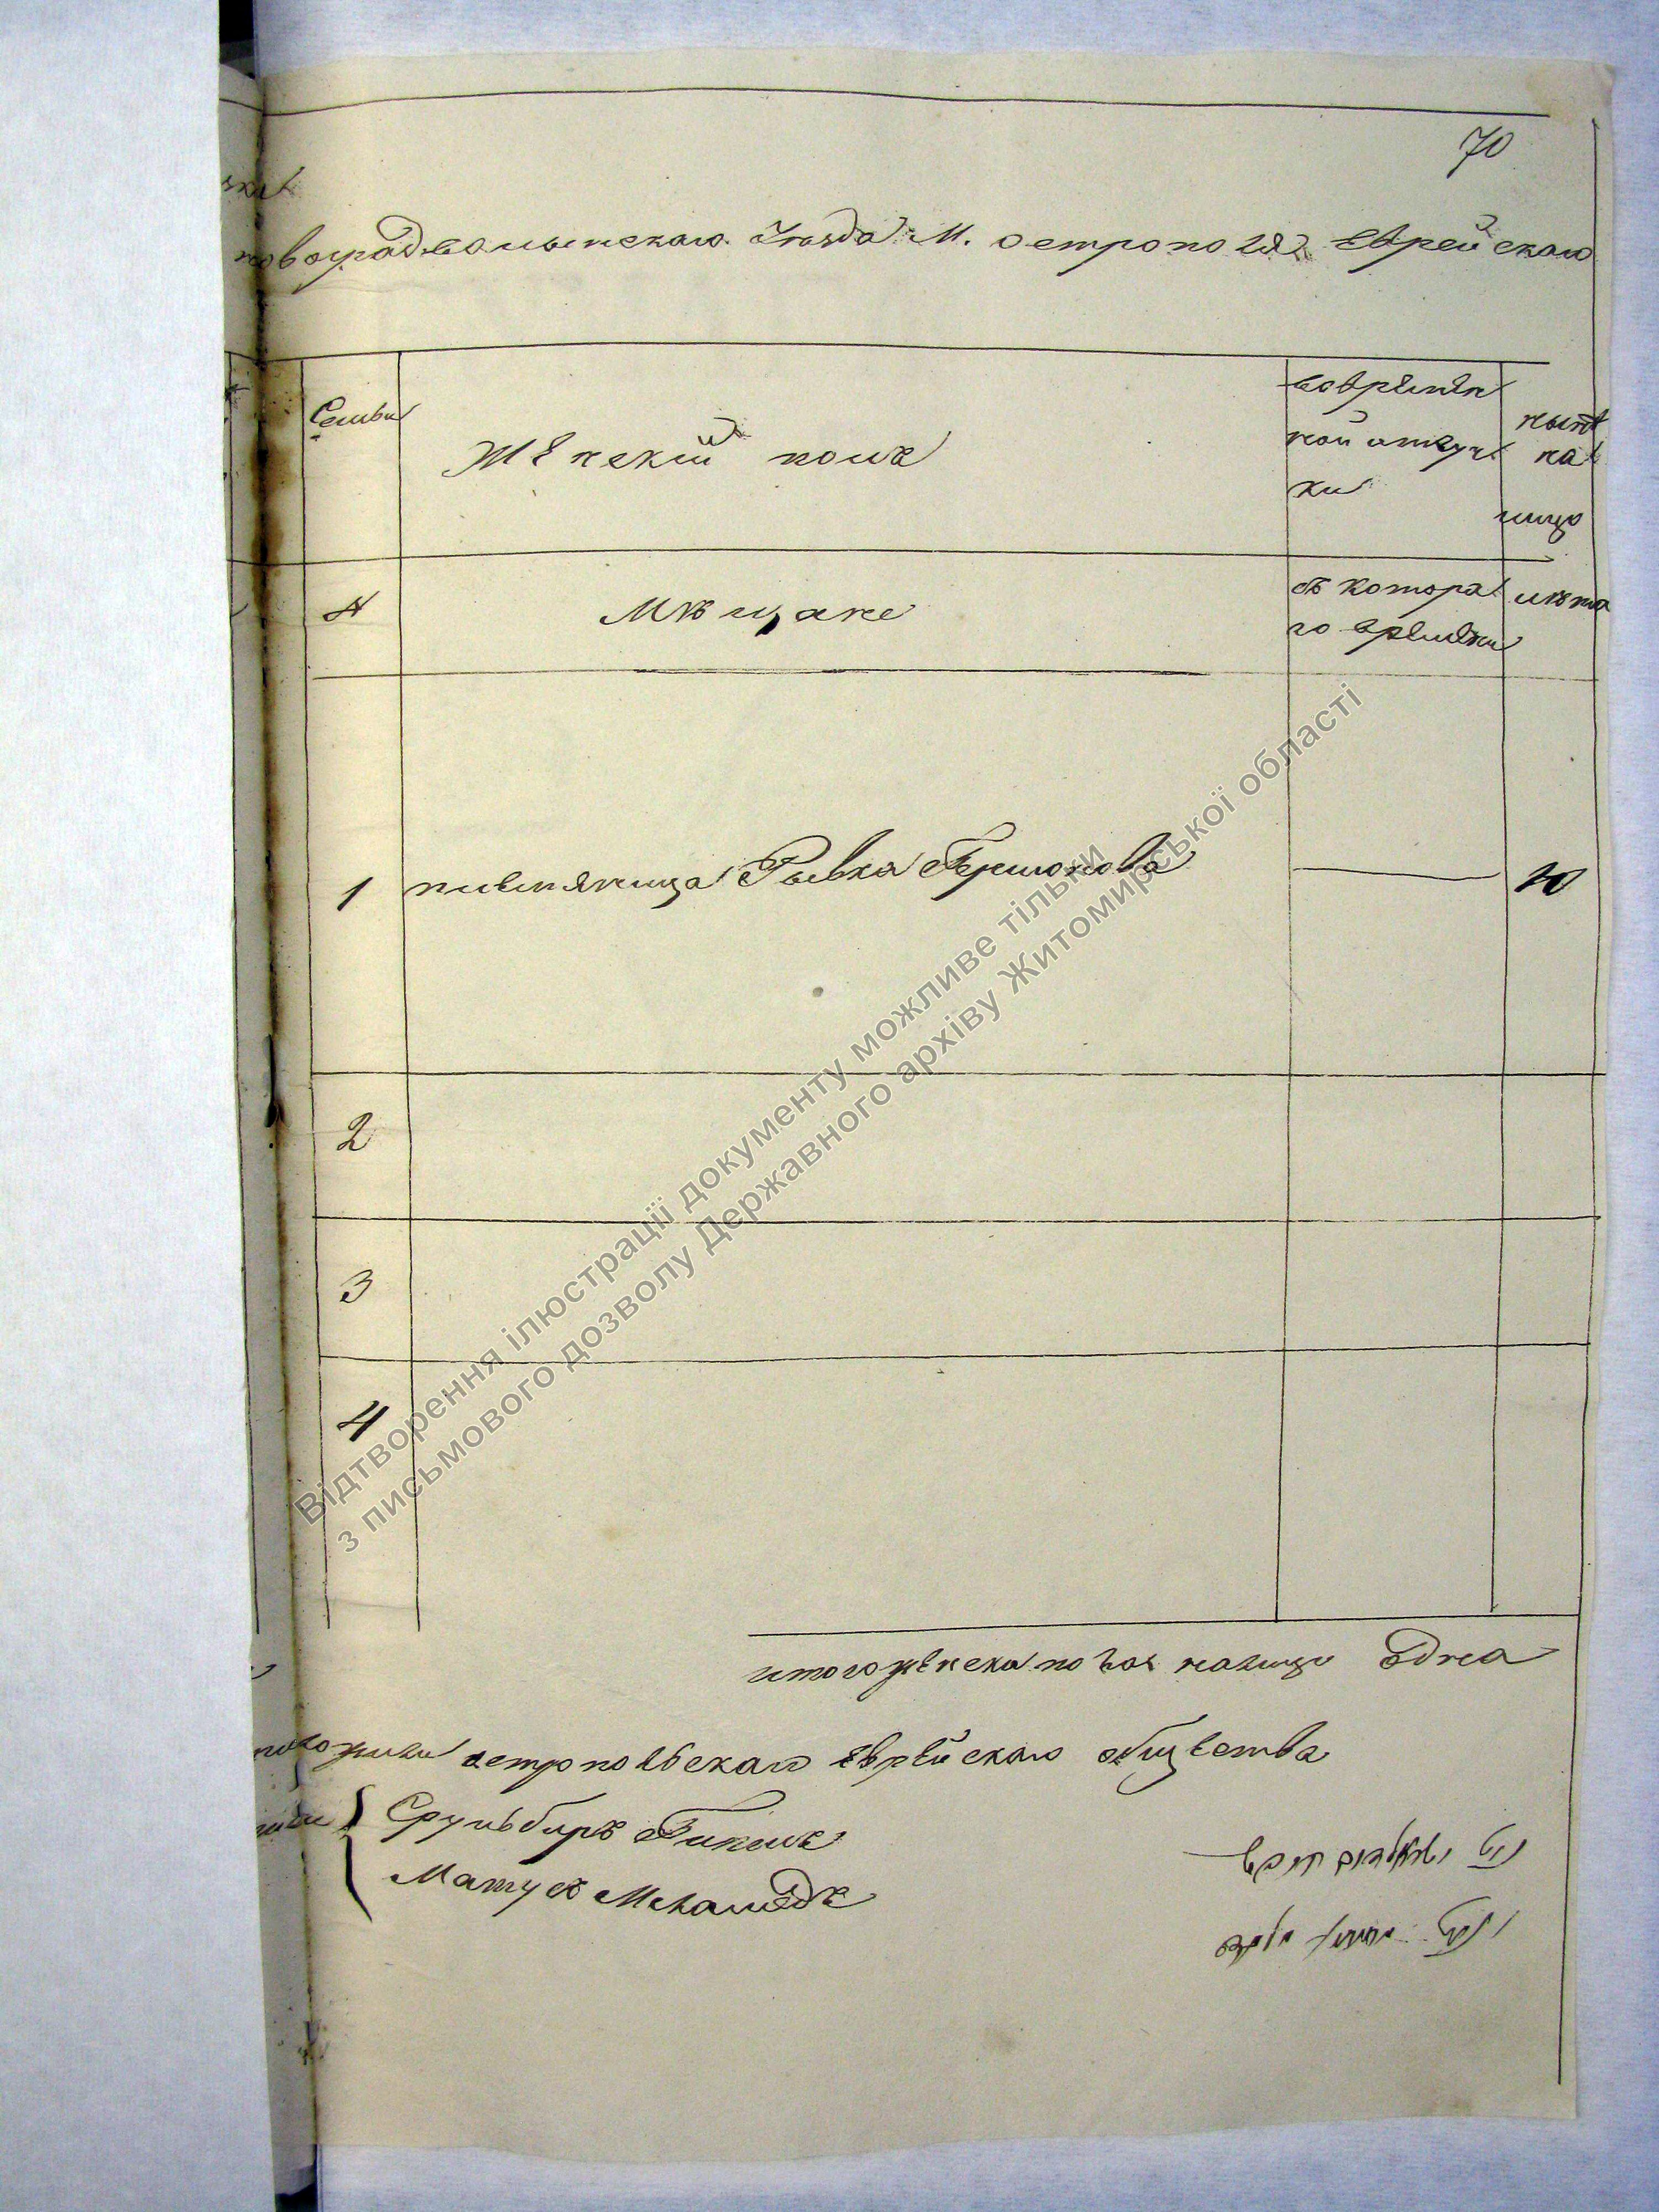 70
новоградволынскаго Уѣзда М. острополя Еврейскаго
Семьи
женский полъ
во времен
ной отлуч
ки
нынѣ
на
лицо
№
Мѣщане
съ котора
го времени
лѣта
1 племяница Рывка Гершкова
2
3
4
итого женска пола налицо Одна
острпольскаго еврейскаго общества
Сруль
Матус Меламедъ
Відтворення ілюстрації документу можливе тільки
з письмового дозволу Державного архіву Житомирської області